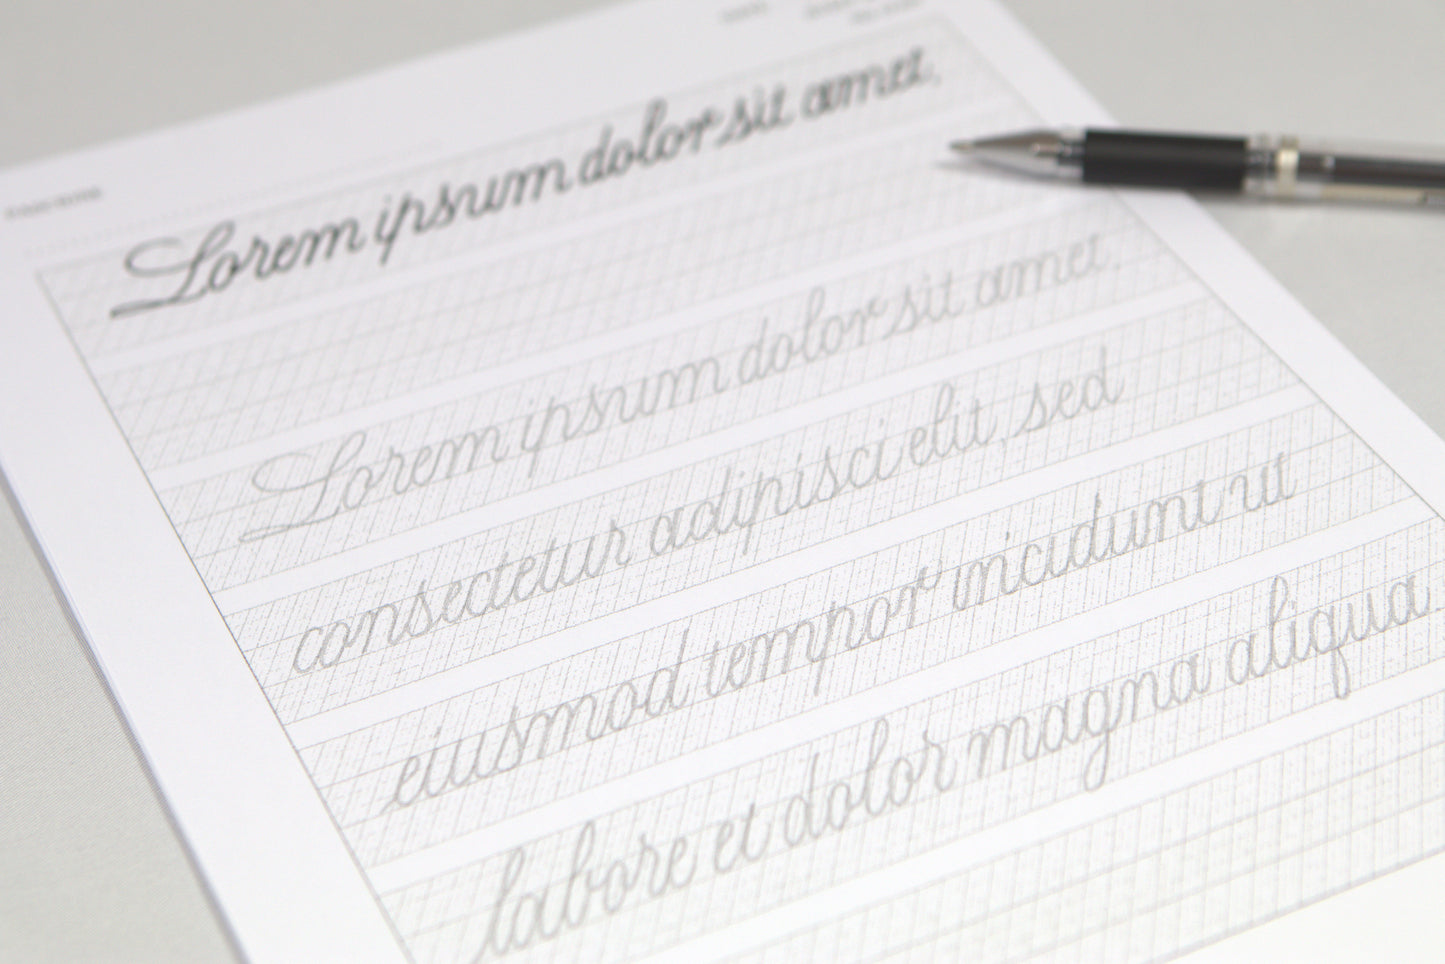 Lorem ipsum dolor sit amet,
Lorem ipsum dolor sit amet,
consectetur adipisci elit, sed
eiusmod tempor incidunt ut
labore et dolor magna aliqua.